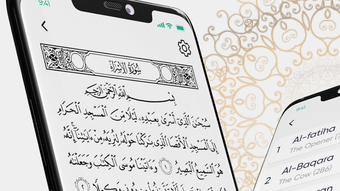 9:41
سُورَةُ الإِسْرَاءِ
بِسْمِ اللَّهِ الرَّحْمَٰنِ الرَّحِيمِ
سُبْحَٰنَ الَّذِي أَسْرَىٰ بِعَبْدِهِ لَيْلًا مِّنَ الْمَسْجِدِ الْحَرَامِ
إِلَى الْمَسْجِدِ الْأَقْصَا الَّذِي بَٰرَكْنَا حَوْلَهُ لِنُرِيَهُ مِنْ ءَايَٰتِنَا إِنَّهُ
هُوَ السَّمِيعُ الْبَصِيرُ ١ وَءَاتَيْنَا مُوسَى الْكِتَٰبَ وَجَعَلْنَٰهُ
9:41
1 Al-fatiha
The Opener (7
2 Al-Baqara
The Cow (286)